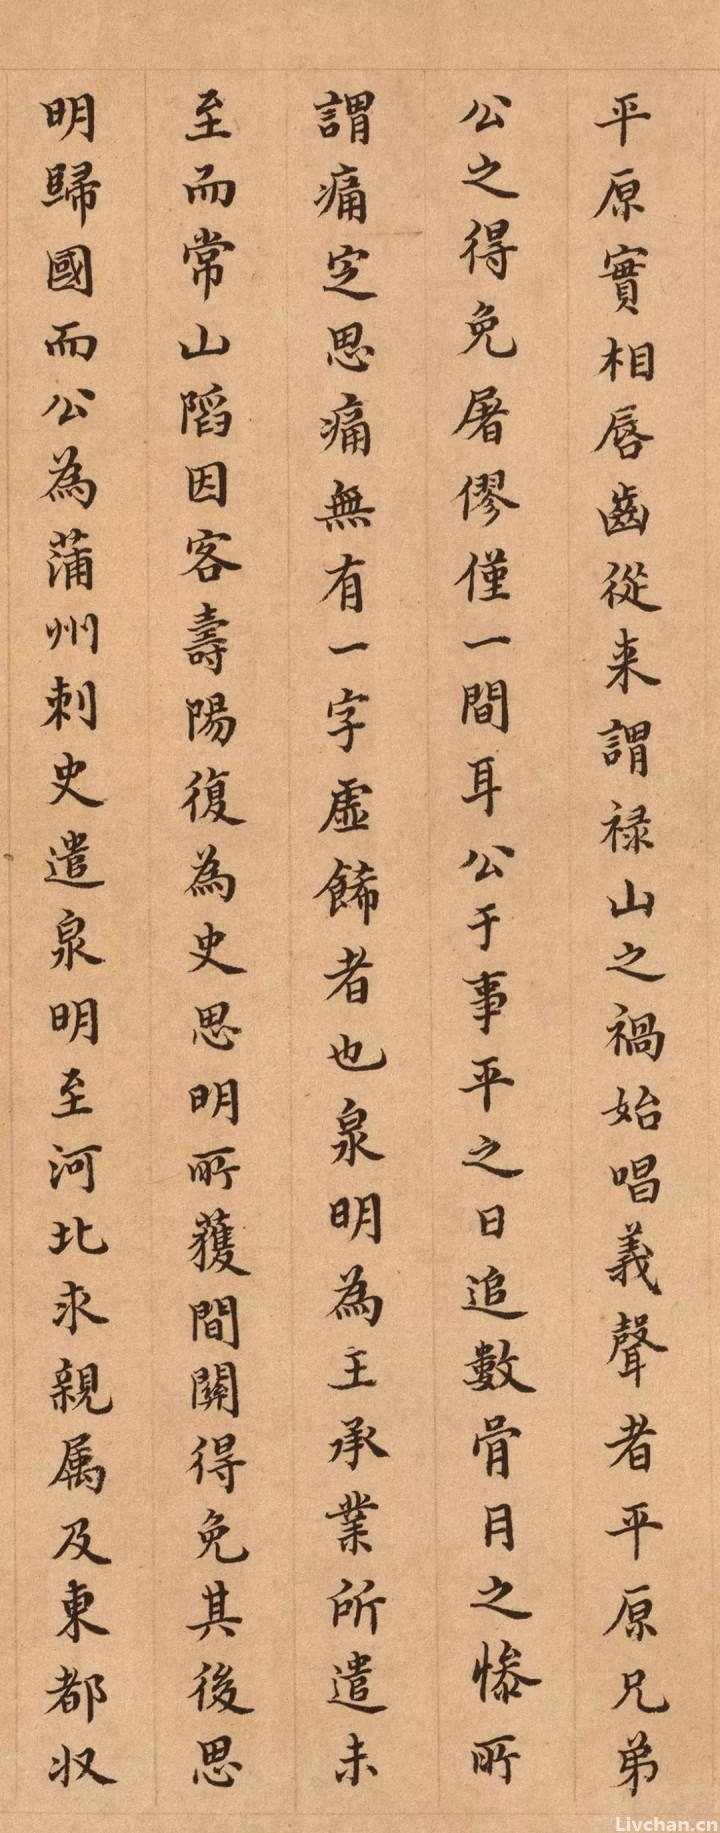 平原實相唇齒從来謂禄山之禍始唱義聲者平原兄弟
公之得免屠僇僅一間耳公于事平之日追數骨月之慘所
謂痛定思痛無有一字虛餙者也泉明為王承業所遣未
至而常山䧟因客壽陽復為史思明所獲間關得免其後思
明歸國而公為蒲州刺史遣泉明至河北求親属及東都収
Livchan.cn